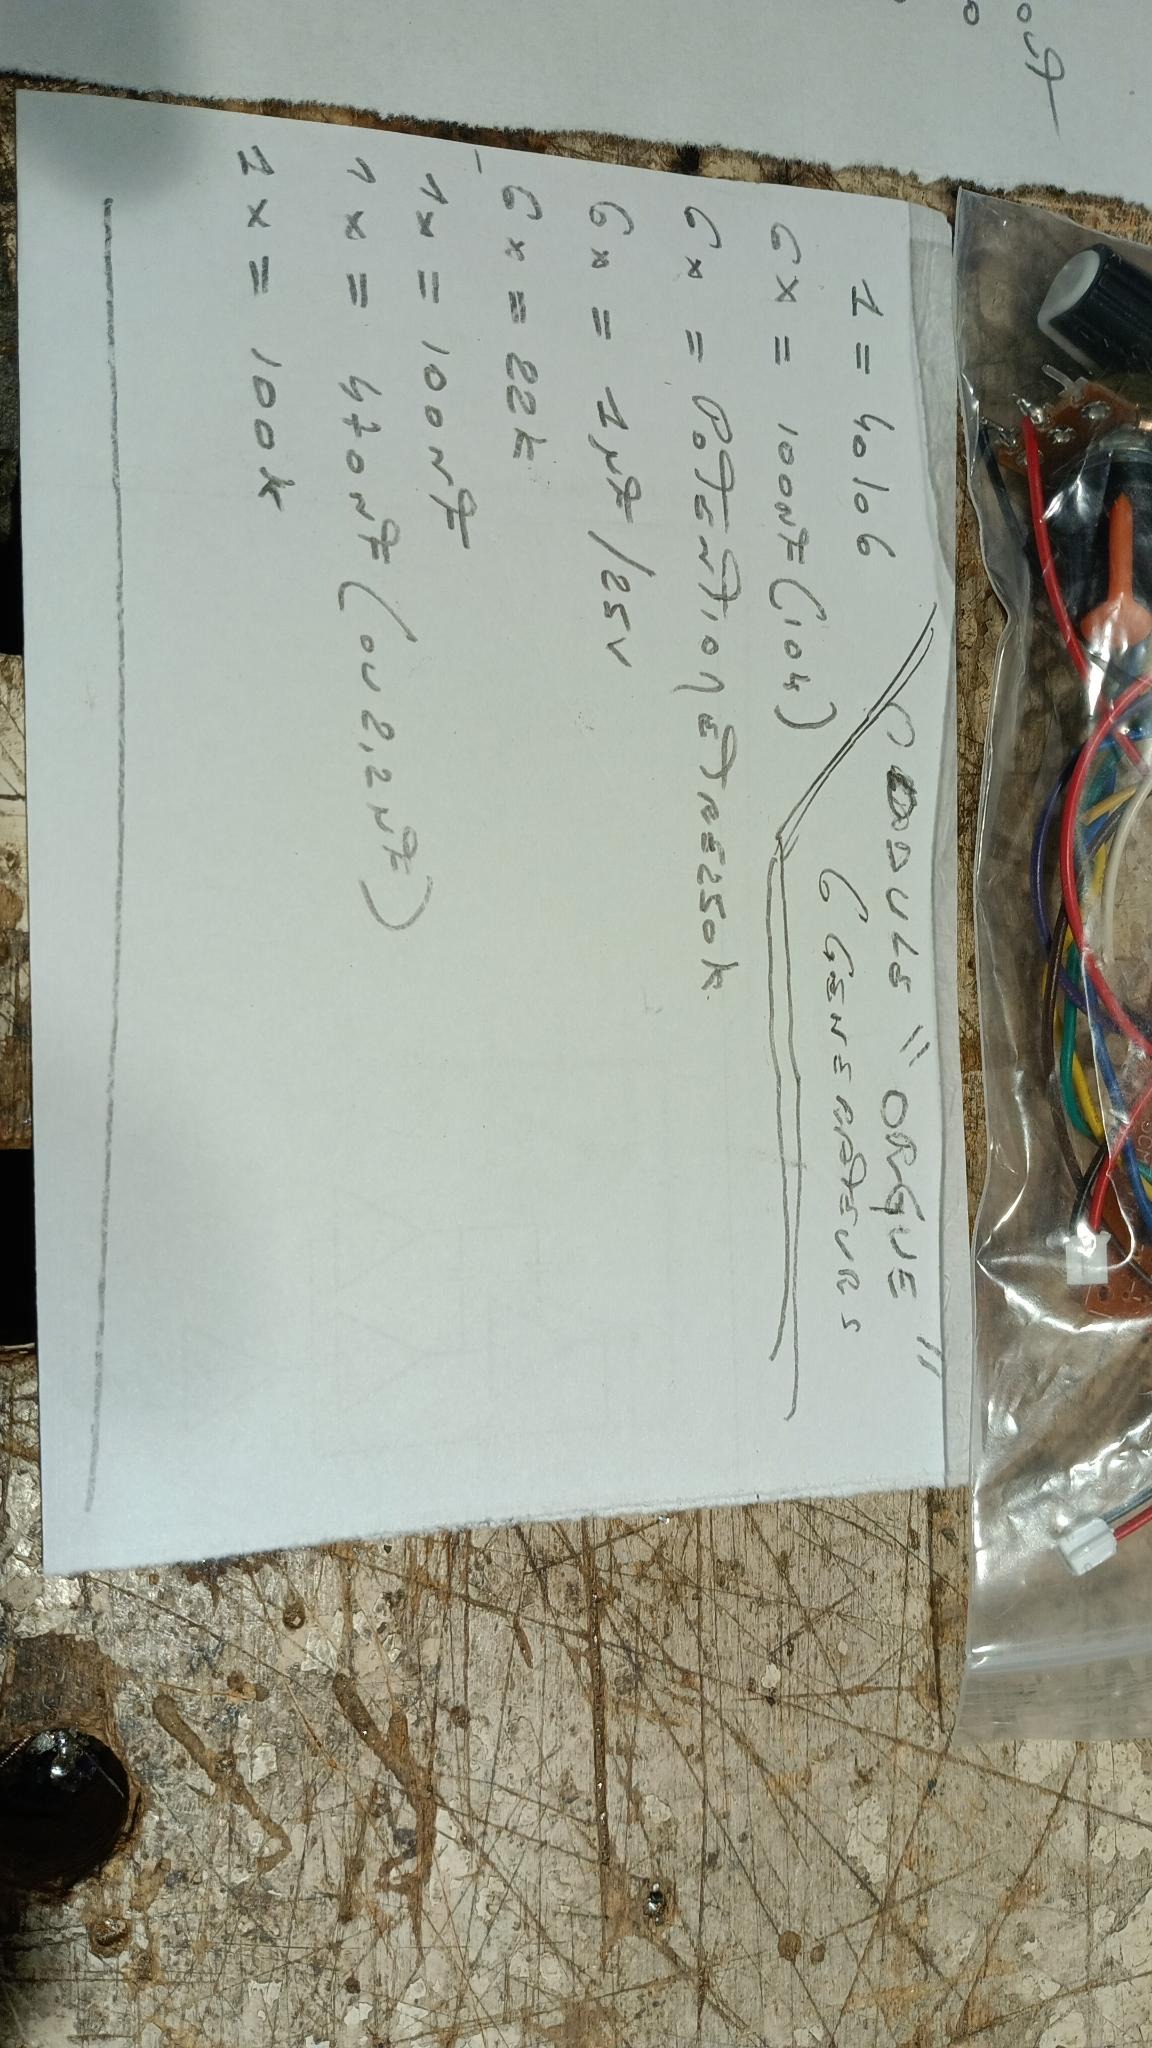 MODULE "ORGUE"
6 GENERATEURS
1 = 40106
6x = 100nF (104)
6x = POTENTIOMETRES 250K
6x = 1µF/25V
- 6x = 22K
1x = 100nF
1x = 470nF (ou 2,2µF)
2x = 100K
OUT